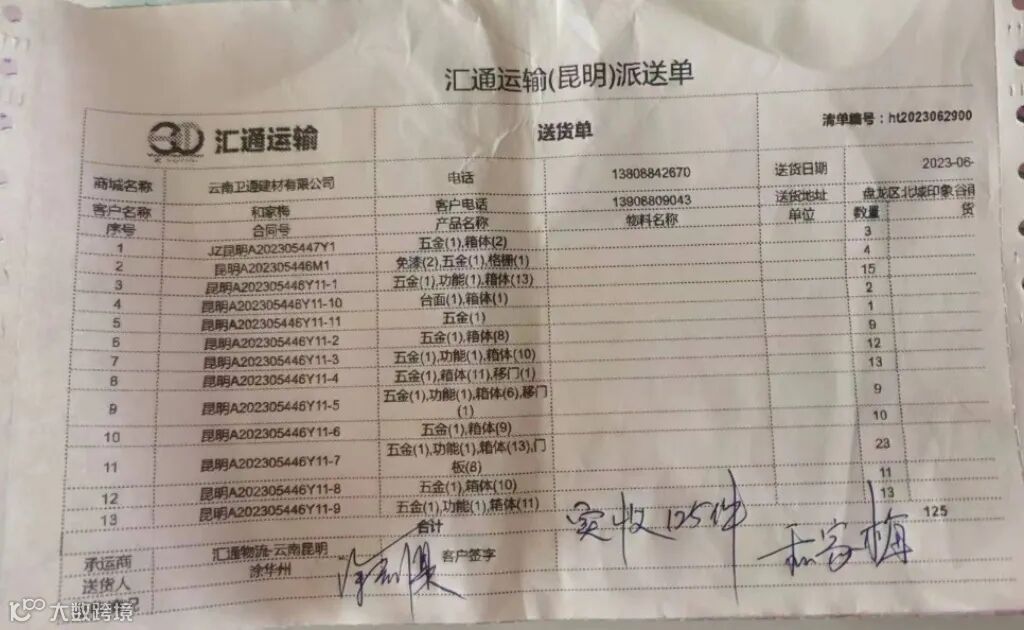 汇通运输(昆明)派送单
汇通运输 送货单 清单编号：ht2023062900
商城名称 云南卫通建材有限公司 电话 13808842670 送货日期 2023-06-
客户名称 和家梅 客户电话 13908809043 送货地址 盘龙区北城印象谷雨
序号 合同号 产品名称 物料名称 单位 数量 货
1 JZ昆明A202305447Y1 五金(1),箱体(2) 3
2 昆明A202305446M1 免漆(2),五金(1),格栅(1) 4
3 昆明A202305446Y11-1 五金(1),功能(1),箱体(13) 15
4 昆明A202305446Y11-10 台面(1),箱体(1) 2
5 昆明A202305446Y11-11 五金(1) 1
6 昆明A202305446Y11-2 五金(1),箱体(8) 9
7 昆明A202305446Y11-3 五金(1),功能(1),箱体(10) 12
8 昆明A202305446Y11-4 五金(1),箱体(11),移门(1) 13
9 昆明A202305446Y11-5 五金(1),功能(1),箱体(6),移门(1) 9
10 昆明A202305446Y11-6 五金(1),箱体(9) 10
11 昆明A202305446Y11-7 五金(1),功能(1),箱体(13),门板(8) 23
12 昆明A202305446Y11-8 五金(1),箱体(10) 11
13 昆明A202305446Y11-9 五金(1),功能(1),箱体(11) 13
合计 125
承运商 汇通物流-云南昆明 客户签字 实收125件 和家梅
送货人 涂华州
大数跨境